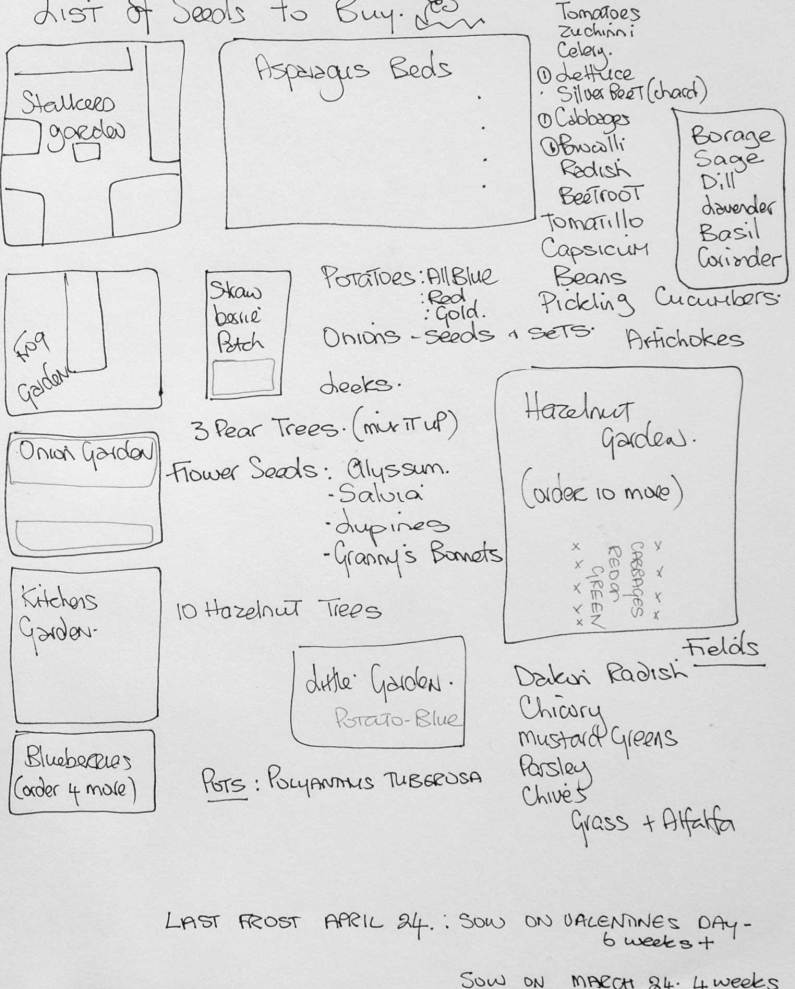 LIST of Seeds to Buy.
Asparagus Beds
garden
Tomatoes
Zuchinni
Celery.
① Lettuce
· Silver Beet (chard)
① Cabbages
① Brocolli
Radish
BeetrooT
Tomatillo
Capsicum
Beans
Pickling Cucumbers.
Artichokes
Borage
Sage
Dill
Lavender
Basil
Corinder
Frog
Garden
Straw
berrie
Patch
Potatoes: All Blue
: Red
: Gold.
Onions - seeds + seTs.
Leeks.
3 Pear Trees. (mix iT up)
Flower Seeds: Alyssum.
- Salvia
- Lupines
- Granny's Bonnets
Onion Garden
Hazelnut
Garden.
(order 10 more)
CABBAGES
RED or
GREEN
Kitchens
Garden.
10 Hazelnut Trees
Little Garden.
Potato-Blue
Blueberries
(order 4 more)
Pots: Polyanthus Tuberosa
Fields
Daikon Radish
Chicory
Mustard Greens
Parsley
Chives
Grass + Alfalfa
LAST FROST APRIL 24.: SOW ON VALENTINES DAY -
6 weeks +
SOW ON MARCH 24. 4 weeks